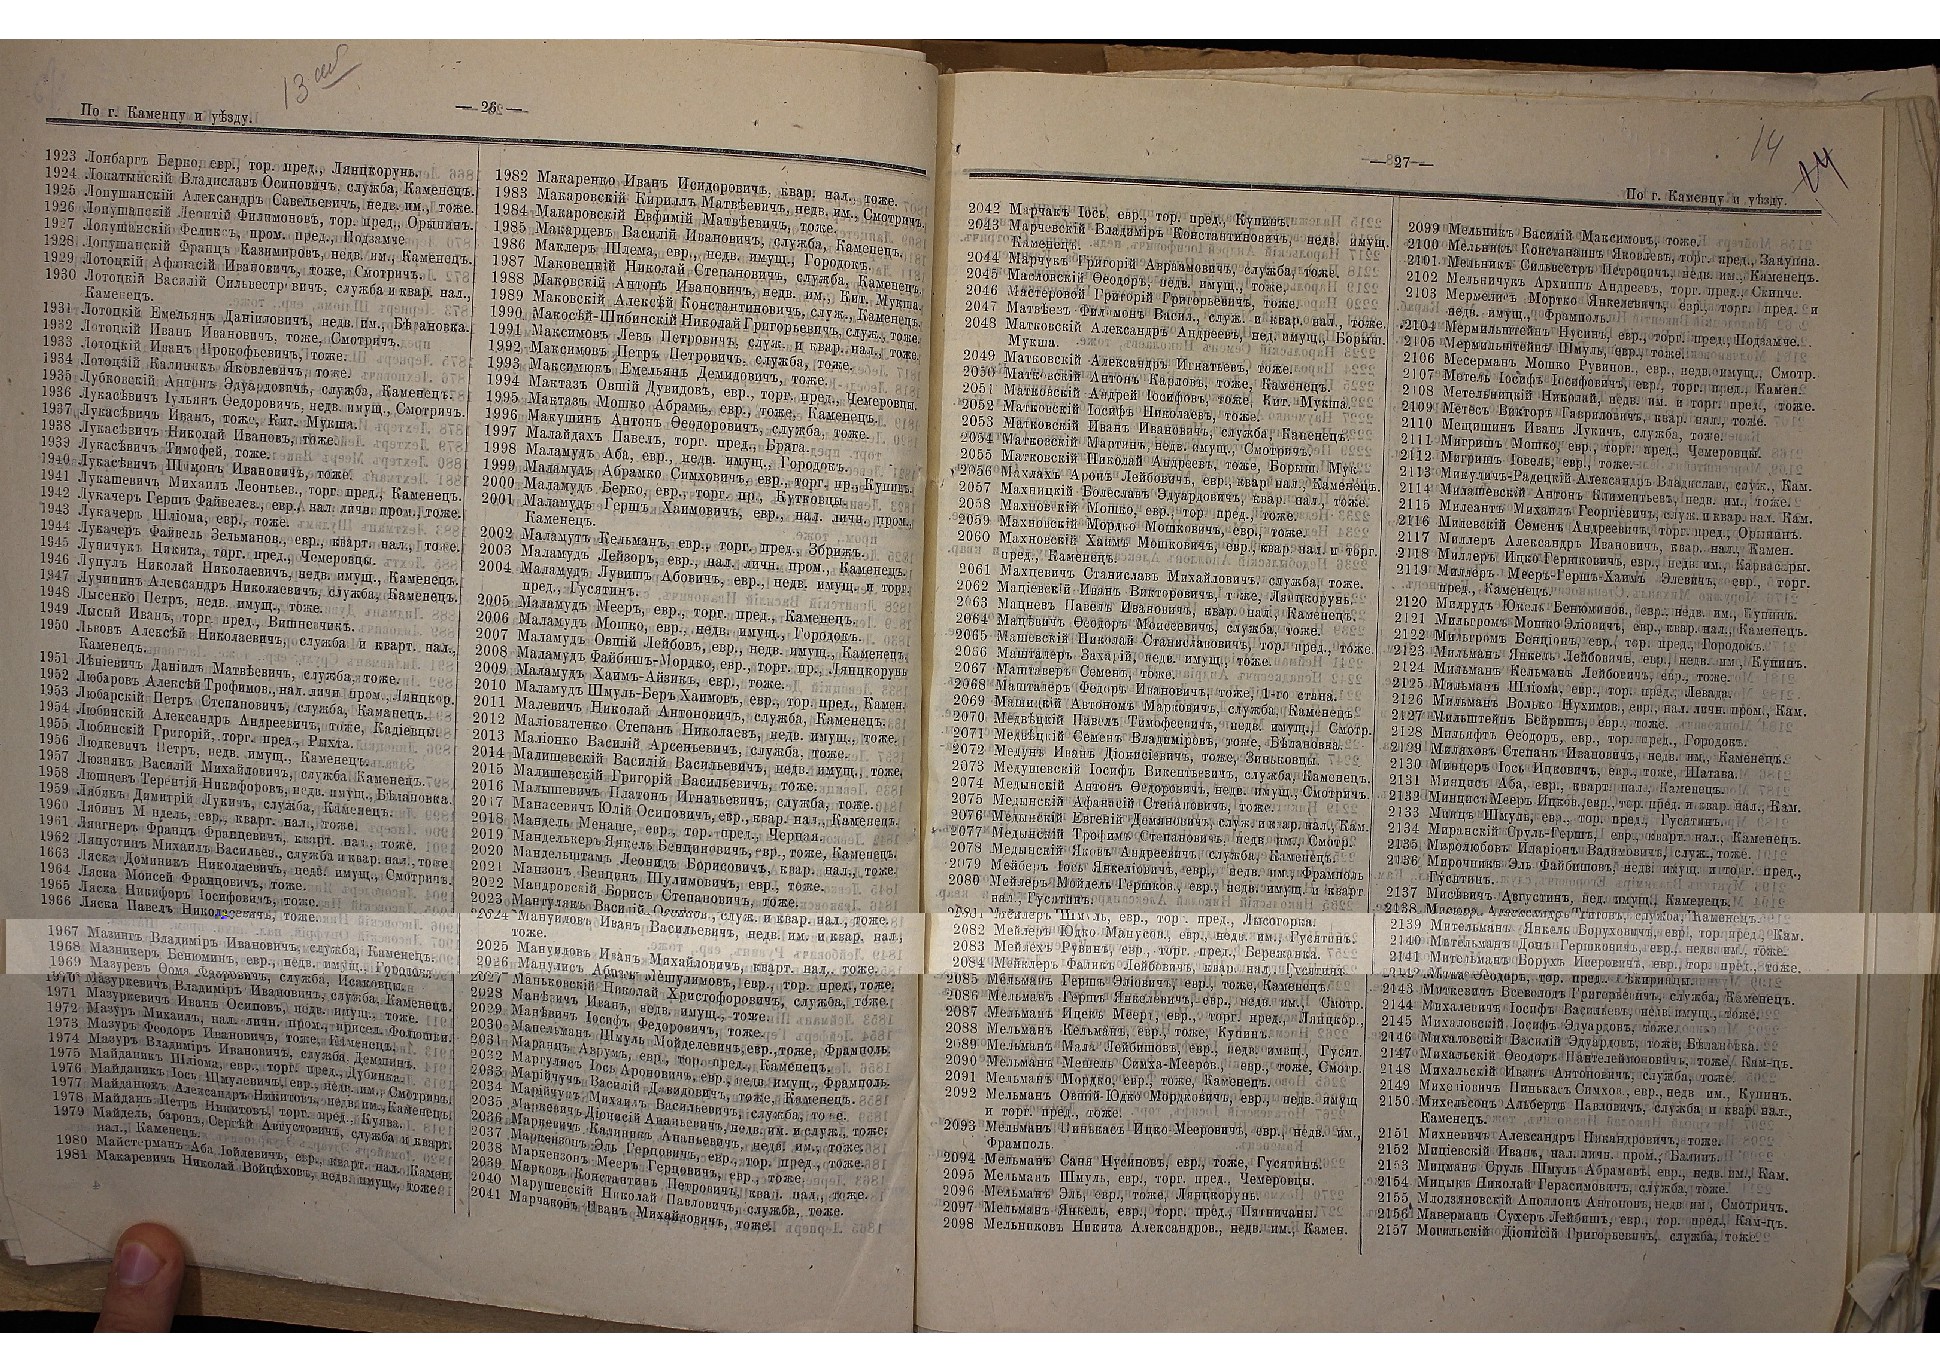 13 об
По г. Каменцу и уѣзду.
— 26 —
1923 Лонбаргъ Берко, евр., тор. пред., Лянцкорунь.
1924 Лопатынскій Владиславъ Осиповичъ, служба, Каменецъ.
1925 Лопушанскій Александръ Савельевичъ, недв. им., тоже.
1926 Лопушанскій Леонтій Филимоновъ, тор. пред., Орынинъ.
1927 Лопушанскій Феликсъ, пром. пред., Подзамче
1928 Лопушанскій Францъ Казимировъ, недв. им., Каменецъ.
1929 Лотоцкій Афанасій Ивановичъ, тоже, Смотричъ.
1930 Лотоцкій Василій Сильвестровичъ, служба и квар. нал.,
Каменецъ.
1931 Лотоцкій Емельянъ Даниловичъ, недв. им., Бѣлановка.
1932 Лотоцкій Иванъ Ивановичъ, тоже, Смотричъ.
1933 Лотоцкій Иванъ Прокофьевичъ, тоже.
1934 Лотоцкій Калиникъ Яковлевичъ, тоже.
1935 Лубковскій Антонъ Эдуардовичъ, служба, Каменецъ.
1936 Лукасѣвичъ Іульянъ Ѳедоровичъ, недв. имущ., Смотричъ.
1937 Лукасѣвичъ Иванъ, тоже, Кит. Мукша.
1938 Лукасѣвичъ Николай Ивановъ, тоже.
1939 Лукасѣвичъ Тимофей, тоже.
1940 Лукасѣвичъ Шимонъ Ивановичъ, тоже.
1941 Лукашевичъ Михаилъ Леонтьев., торг. пред., Каменецъ.
1942 Лукачеръ Гершъ Файвелев., евр., нал. личн. пром., тоже.
1943 Лукачеръ Шліома, евр., тоже.
1944 Лукачеръ Файвель Зельманов., евр., кварт. нал., тоже.
1945 Луничукъ Никита, торг. пред., Чемеровцы.
1946 Лупулъ Николай Николаевичъ, недв. имущ., Каменецъ.
1947 Лучининъ Александръ Николаевичъ, служба, Каменецъ.
1948 Лысенко Петръ, недв. имущ., тоже.
1949 Лысый Иванъ, торг. пред., Вишневчикъ.
1950 Львовъ Алексѣй Николаевичъ, служба и кварт. нал.,
Каменецъ.
1951 Лѣніевичъ Даніилъ Матвѣевичъ, служба, тоже.
1952 Любаровъ Алексѣй Трофимов., нал. личн. пром., Лянцкор.
1953 Любарскій Петръ Степановичъ, служба, Каманецъ.
1954 Любинскій Александръ Андреевичъ, тоже, Кадіевцы.
1955 Любинскій Григорій, торг. пред., Рыхта.
1956 Людкевичъ Петръ, недв. имущ., Каменецъ.
1957 Люзникъ Василій Михайловичъ, служба, Каменецъ.
1958 Люшневъ Терентій Никифоровъ, недв. имущ., Бѣлановка.
1959 Лябикъ Димитрій Лукичъ, служба, Каменецъ.
1960 Лябинъ М ндель, евр., кварт. нал., тоже.
1961 Лянгнеръ Францъ Францевичъ, кварт. нал., тоже.
1962 Ляпустинъ Михаилъ Васильев., служба и квар. нал., тоже
1663 Ляска Доминикъ Николаевичъ, недв. имущ., Смотричъ.
1964 Ляска Моисей Францовичъ, тоже.
1965 Ляска Никифоръ Іосифовичъ, тоже.
1966 Ляска Павелъ Николаевичъ, тоже.
1967 Мазингъ Владиміръ Ивановичъ, служба, Каменецъ.
1968 Мазникеръ Бенюминъ, евр., недв. имущ., Городокъ.
1969 Мазуревъ Ѳома Федоровичъ, служба, Исаковцы.
1970 Мазуркевичъ Владиміръ Ивановичъ, служба, Каменецъ.
1971 Мазуркевичъ Иванъ Осиповъ, недв. имущ., тоже.
1972 Мазуръ Михаилъ, нал. личн. пром., присел. Фольюшки.
1973 Мазуръ Феодоръ Ивановичъ, тоже, Каменецъ.
1974 Мазуръ Владиміръ Ивановичъ, служба, Демшинъ.
1975 Майданикъ Шліома, евр., торг. пред., Дубинка.
1976 Майданикъ Іось Шмулевичъ, евр., недв. им., Смотричъ.
1977 Майданюкъ Александръ Никитовъ, недв. им., Каменецъ.
1978 Майданъ Петръ Никитовъ, торг. пред., Куява.
1979 Майдель, баронъ, Сергѣй Августовичъ, служба и кварт.
нал., Каменецъ.
1980 Майстерманъ Аба Іойлевичъ, евр., кварт. нал., Камен.
1981 Макаревичъ Николай Войцѣховъ, недв. имущ., тоже.
1982 Макаренко Иванъ Исидоровичъ, квар. нал., тоже.
1983 Макаровскій Кириллъ Матвѣевичъ, недв. им., Смотричъ.
1984 Макаровскій Евфимій Матвѣевичъ, тоже.
1985 Макарцевъ Василій Ивановичъ, служба, Каменецъ.
1986 Маклеръ Шлема, евр., недв. имущ., Городокъ.
1987 Маковецкій Николай Степановичъ, служба, Каменецъ.
1988 Маковскій Антонъ Ивановичъ, недв. им., Кит. Мукша.
1989 Маковскій Алексѣй Константиновичъ, служ., Каменецъ.
1990 Макосѣй-Шибинскій Николай Григорьевичъ, служ., тоже.
1991 Максимовъ Левъ Петровичъ, служ. и квар. нал., тоже.
1992 Максимовъ Петръ Петровичъ, служба, тоже.
1993 Максимюкъ Емельянъ Демидовичъ, тоже.
1994 Мактазъ Овшій Дувидовъ, евр., торг. пред., Чемеровцы.
1995 Мактазъ Мошко Абрамъ, евр., тоже, Каменецъ.
1996 Макушинъ Антонъ Ѳеодоровичъ, служба, тоже.
1997 Малайдахъ Павелъ, торг. пред., Брага.
1998 Маламудъ Аба, евр., недв. имущ., Городокъ.
1999 Маламудъ Абрамко Симховичъ, евр., торг. пр., Купинъ.
2000 Маламудъ Берко, евр., торг. пр., Кутковцы.
2001 Маламудъ Гершъ Хаимовичъ, евр., нал. личн. пром.,
Каменецъ.
2002 Маламутъ Кельманъ, евр., торг. пред., Збрижъ.
2003 Маламудъ Лейзоръ, евр., нал. личн. пром., Каменецъ.
2004 Маламудъ Лувишъ Абовичъ, евр., недв. имущ. и торг.
пред., Гусятинъ.
2005 Маламудъ Мееръ, евр., торг. пред., Каменецъ.
2006 Маламудъ Мошко, евр., недв. имущ., Городокъ.
2007 Маламудъ Овшій Лейбовъ, евр., недв. имущ., Каменецъ.
2008 Маламудъ Файбишъ-Мордко, евр., торг. пр., Лянцкорунь
2009 Маламудъ Хаимъ-Айзикъ, евр., тоже.
2010 Маламудъ Шмуль-Беръ Хаимовъ, евр., тор. пред., Камен.
2011 Малевичъ Николай Антоновичъ, служба, Каменецъ.
2012 Маліоватенко Степанъ Николаев., недв. имущ., тоже.
2013 Маліонко Василій Арсеньевичъ, служба, тоже.
2014 Малишевскій Василій Васильевичъ, недв. имущ., тоже.
2015 Малишевскій Григорій Васильевичъ, тоже.
2016 Малышевичъ Платонъ Игнатьевичъ, служба, тоже.
2017 Манасевичъ Юлій Осиповичъ, евр., квар. нал., Каменецъ.
2018 Мандель Менаше, евр., тор. пред., Черная.
2019 Манделькеръ Янкель Бенциновичъ, евр., тоже, Каменецъ.
2020 Мандельштамъ Леонидъ Борисовичъ, квар. нал., тоже.
2021 Манзонъ Бенцонъ Шулимовичъ, евр., тоже.
2022 Мандровскій Борисъ Степановичъ, тоже.
2023 Мантулякъ Василій служ. и квар. нал., тоже.
2024 Мануиловъ Иванъ Васильевичъ, недв. им. и квар. нал.,
тоже.
2025 Мануиловъ Иванъ Михайловичъ, кварт. нал., тоже.
2026 Манулисъ Абамъ Мешулимовъ, евр., тор. пред., тоже.
2027 Маньковскій Николай Христофоровичъ, служба, тоже.
2028 Манѣвичъ Иванъ, недв. имущ., тоже.
2029 Манѣвичъ Іосифъ Федоровичъ, тоже.
2030 Манельманъ Шмуль Мойделевичъ, евр., тоже, Фрамполь.
2031 Маранцъ Аврумъ, евр., тор. пред., Каменецъ.
2032 Маргулисъ Іось Ароновичъ, евр., недв. имущ., Фрамполь.
2033 Марійчучъ Василій Давидовичъ, тоже, Каменецъ.
2034 Марійчукъ Михаилъ Васильевичъ, служба, тоже.
2035 Маркевичъ Діонисій Ананьевичъ, недв. им. и служ., тоже.
2036 Маркевичъ Калиникъ Ананьевичъ, недв. им., тоже.
2037 Маркензонъ Эль Герцовичъ, евр., тор. пред., тоже.
2038 Маркензонъ Мееръ Герцовичъ, евр., тоже.
2039 Марковъ Константинъ Петровичъ, квар. нал., тоже.
2040 Марушевскій Николай Павловичъ, служба, тоже.
2041 Марчаковъ Иванъ Михайловичъ, тоже.
14
14
— 27 —
По г. Каменцу и уѣзду.
2042 Марчакъ Іось, евр., тор. пред., Купинъ.
2043 Марчевскій Владиміръ Константиновичъ, недв. имущ.
Каменецъ.
2044 Марчукъ Григорій Авраамовичъ, служба, тоже.
2045 Масловскій Ѳеодоръ, недв. имущ., тоже.
2046 Мастеровой Григорій Григорьевичъ, тоже.
2047 Матвѣевъ Филимонъ Васил., служ. и квар. нал., тоже.
2048 Матковскій Александръ Андреевъ, нед. имущ., Борыш.
Мукша.
2049 Матковскій Александръ Игнатьевъ, тоже.
2050 Матковскій Антонъ Карловъ, тоже, Каменецъ.
2051 Матковскій Андрей Іосифовъ, тоже, Кит. Мукша.
2052 Матковскій Іосифъ Николаевъ, тоже.
2053 Матковскій Иванъ Ивановичъ, служба, Каненецъ.
2054 Матковскій Мартинъ, недв. имущ., Смотричъ.
2055 Матковскій Николай Андреевъ, тоже, Борыш. Мук.
2056 Махлахъ Аронъ Лейбовичъ, евр., квар. нал., Каменецъ.
2057 Махницкій Болеславъ Эдуардовичъ, квар. нал., тоже.
2058 Махновскій Мошко, евр., тор. пред., тоже.
2059 Махновскій Мордко Мошковичъ, евр., тоже.
2060 Махновскій Хаимъ Мошковичъ, евр., квар. нал. и торг.
пред., Каменецъ.
2061 Махцевичъ Станиславъ Михайловичъ, служба, тоже.
2062 Маціевскій Иванъ Викторовичъ, тоже, Лянцкорунь.
2063 Мацневъ Павелъ Ивановичъ, квар. нал., Каменецъ.
2064 Мацѣвичъ Ѳеодоръ Моисеевичъ, служба, тоже.
2065 Машевскій Николай Станиславовичъ, тор. пред., тоже.
2066 Машталеръ Захарій, недв. имущ., тоже.
2067 Маштаверъ Семенъ, тоже.
2068 Машталеръ Федоръ Ивановичъ, тоже, 1-го стана.
2069 Машицкій Автономъ Марковичъ, служба, Каменецъ.
2070 Медвѣцкій Павелъ Тимофеевичъ, недв. имущ., Смотр.
2071 Медвѣцкій Семенъ Владиміровъ, тоже, Бѣлановка.
2072 Медунъ Иванъ Діонисіевичъ, тоже, Зиньковцы.
2073 Медушевскій Іосифъ Викентьевичъ, служба, Каменецъ.
2074 Медынскій Антонъ Ѳедоровичъ, недв. имущ., Смотричъ.
2075 Медынскій Афанасій Степановичъ, тоже.
2076 Медынскій Евгеній Домановичъ, служ. и квар. нал., Кам.
2077 Медынскій Трофимъ Степановичъ, недв. им., Смотр.
2078 Медынскій Яковъ Андреевичъ, служба, Каменецъ.
2079 Мейберъ Іось Янкеліовичъ, евр., недв. им., Фрамполь
2080 Мейлеръ Мойдель Гершков., евр., недв. имущ. и кварт
нал., Гусятинъ.
2081 Мейлеръ Шмуль, евр., тор. пред., Лысогорка.
2082 Мейлеръ Юдко Манусов., евр., недв. им., Гусятинъ.
2083 Мейлехъ Рувинъ, евр., торг. пред., Бережанка.
2084 Мейклеръ Фаликъ Лейбовичъ, квар. нал., Гусятинъ.
2085 Мельманъ Гершъ Эліовичъ, евр., тоже, Каменецъ.
2086 Мельманъ Гершъ Янкелевичъ, евр., недв. им., Смотр.
2087 Мельманъ Ицекъ Меерт, евр., торг. пред., Лянцкор.,
2088 Мельманъ Кельманъ, евр., тоже, Купинъ.
2089 Мельманъ Мала Лейбишов., евр., недв. имвщ., Гусят.
2090 Мельманъ Мешель Симха-Мееров., евр., тоже, Смотр.
2091 Мельманъ Мордко, евр., тоже, Каменецъ.
2092 Мельманъ Овшій-Юдко Мордковичъ, евр., недв. имущ
и торг. пред., тоже.
2093 Мельманъ Пинькасъ Ицко-Мееровичъ, евр., недв. им.,
Фрамполь.
2094 Мельманъ Саня Нусиновъ, евр., тоже, Гусятинъ.
2095 Мельманъ Шмуль, евр., торг. пред., Чемеровцы.
2096 Мельманъ Эль, евр., тоже, Лянцкорунь.
2097 Мельманъ Янкель, евр., торг. пред., Пятничаны.
2098 Мельниковъ Никита Александров., недв. им., Камен.
2099 Мельникъ Василій Максимовъ, тоже.
2100 Мельникъ Констанаинъ Яковлевъ, торг. пред., Закупна.
2101 Мельникъ Сильвестръ Петровичъ, недв. им., Каменецъ.
2102 Мельничукъ Архипъ Андреевъ, торг. пред., Скипче.
2103 Мермелисъ Мортко Янкелевичъ, евр., торг. пред. и
недв. имущ., Фрамполь.
2104 Мермильштейнъ Нусинъ, евр., торг. пред., Подзамче.
2105 Мермильштейнъ Шмуль, евр., тоже.
2106 Месерманъ Мошко Рувинов., евр., недв. имущ., Смотр.
2107 Метель Іосифъ Іосифовичъ, евр., торг. пред., Камен.
2108 Метельницкій Николай, недв. им. и торг. пред., тоже.
2109 Метесъ Викторъ Гавриловичъ, квар. нал., тоже.
2110 Мещишинъ Иванъ Лукичъ, служба, тоже.
2111 Мигришъ Мошко, евр., тор. пред., Чемеровцы.
2112 Мигришъ Іовель, евр., тоже.
2113 Микуличъ-Радецкій Александръ Владислав., служ., Кам.
2114 Милашевскій Антонъ Климентьевъ, недв. им., тоже.
2115 Милеантъ Михаилъ Георгіевичъ, служ. и квар. нал. Кам.
2116 Милевскій Семенъ Андреевичъ, торг. пред., Орынинъ.
2117 Миллеръ Александръ Ивановичъ, квар. нал., Камен.
2118 Миллеръ Ицко Гершковичъ, евр., недв. им., Карвасары.
2119 Миллеръ Мееръ-Гершъ-Хаимъ Элевичъ, евр., торг.
пред., Каменецъ.
2120 Милрудъ Юкель Бенюминов., евр., недв. им., Купинъ.
2121 Мильгромъ Мошко Эліовичъ, евр., квар. нал., Каменецъ.
2122 Мильгромъ Бенціонъ, евр., тор. пред., Городокъ.
2123 Мильманъ Янкель Лейбовичъ, евр., недв. им., Купинъ.
2124 Мильманъ Кельманъ Лейбовичъ, евр., тоже.
2125 Мильманъ Шліома, евр., тор. пред., Левада.
2126 Мильманъ Волько Нухимов., евр., нал. личн. пром., Кам.
2127 Мильштейнъ Бейришъ, евр., тоже.
2128 Мильштъ Ѳеодоръ, евр., тор. пред., Городокъ.
2129 Миляховъ Степанъ Ивановичъ, недв. им., Каменецъ.
2130 Минцеръ Іось Ицковичъ, евр., тоже, Шатава.
2131 Минцисъ Аба, евр., кварт. нал., Каменецъ.
2132 Минцисъ Мееръ Ицков., евр., тор. пред. и квар. нал., Кам.
2133 Минцъ Шмуль, евр., тор. пред., Гусятинъ.
2134 Миранскій Сруль-Гершъ, евр., кварт. нал., Каменецъ.
2135 Миролюбовъ Иларіонъ Вадимовичъ, служ., тоже.
2136 Мирочникъ Эль Файбишовъ, недв. имущ. и торг. пред.,
Гусятинъ.
2137 Мисѣвичъ Августинъ, нед. имущ., Каменецъ.
2138 Александръ Титовъ, служба, Каменецъ.
2139 Мительманъ Янкель Боруховичъ, евр., тор. пред., Кам.
2140 Мительманъ Донъ Гершковичъ, евр., недв. им., тоже.
2141 Мительманъ Борухъ Исеровичъ, евр., тор. пред., тоже.
2142 Ѳеодоръ, тор. пред.,
2143 Миткевичъ Всеволодъ Григорьевичъ, служба, Каменецъ.
2144 Михалевичъ Іосифъ Васильевъ, недв. имущ., тоже.
2145 Михаловскій Іосифъ Эдуардовъ, тоже.
2146 Михаловскій Василій Эдуардовъ, тоже, Бѣлановка.
2147 Михальскій Ѳеодоръ Пантелеймоновичъ, тоже, Кам-цъ.
2148 Михальскій Иванъ Антоновичъ, служба, тоже.
2149 Михеліовичъ Пинькасъ Симхов., евр., недв им., Купинъ.
2150 Михельсонъ Альбертъ Павловичъ, служба и квар. нал.,
Каменецъ.
2151 Михневичъ Александръ Никандровичъ, тоже.
2152 Миціевскій Иванъ, нал. личн. пром., Балинъ.
2153 Мицманъ Сруль Шмуль Абрамовъ, евр., недв. им., Кам.
2154 Мицыкъ Николай Герасимовичъ, служба, тоже.
2155 Млодзяновскій Аполлонъ Антоновъ, недв им., Смотричъ.
2156 Маверманъ Сухеръ Лейбиш., евр., тор. пред., Кам-цъ.
2157 Могильскій Діонисій Григорьевичъ, служба, тоже.